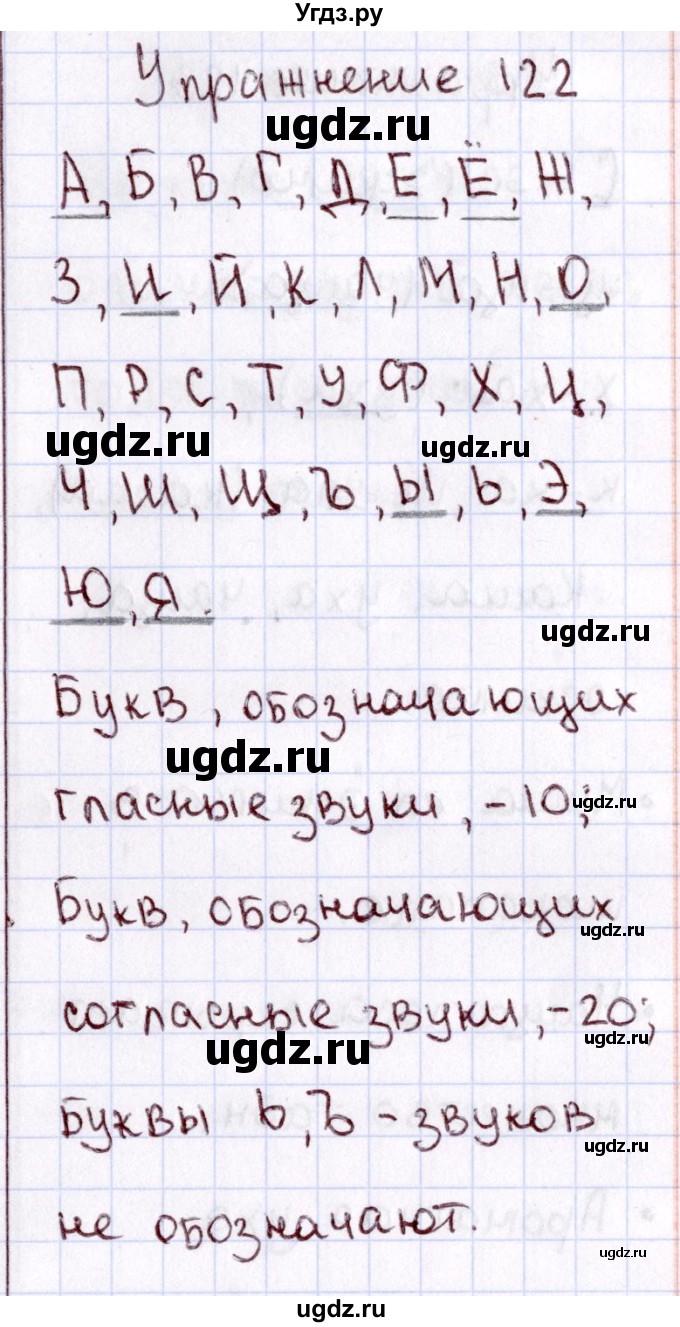 Угдз.ру
Упражнение 122
ugdz.ru
А, Б, В, Г, Д, Е, Ё, Ж,
З, И, Й, К, Л, М, Н, О,
П, Р, С, Т, У, Ф, Х, Ц,
ugdz.ru ugdz.ru
Ч, Ш, Щ, Ъ, Ы, Ь, Э,
Ю, Я.
ugdz.ru
Букв, обозначающих
ugdz.ru
гласные звуки, -10;
ugdz.ru
Букв, обозначающих
ugdz.ru
согласные звуки, -20;
ugdz.ru ugdz.ru
Буквы Ь, Ъ - звуков
ugdz.ru
не обозначают.
ugdz.ru
ugdz.ru